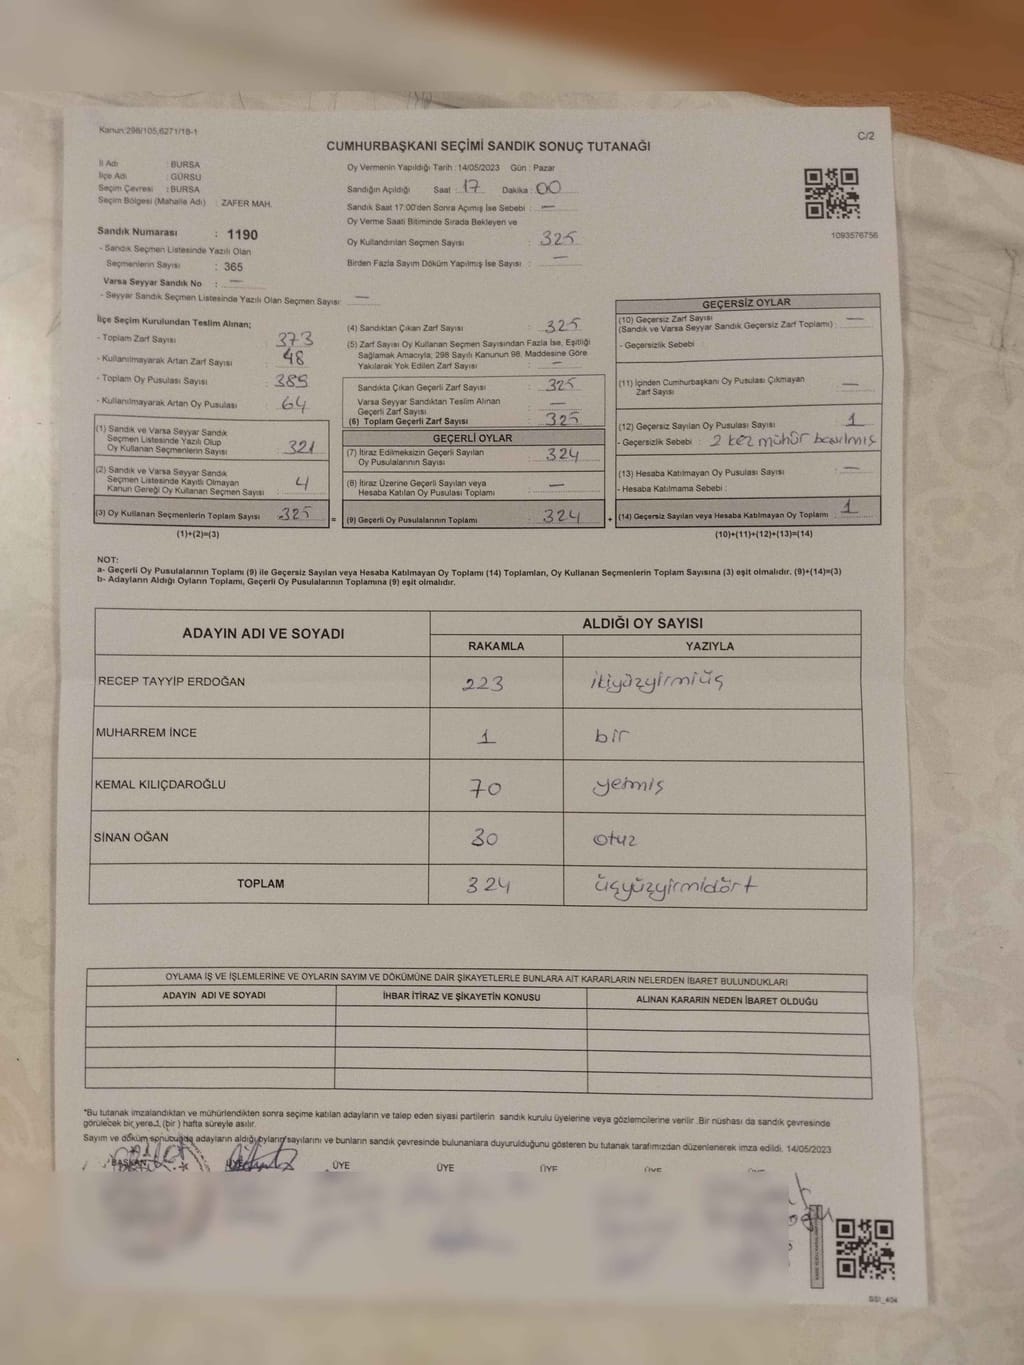 Kanun:298/105,6271/18-1
C/2
CUMHURBAŞKANI SEÇİMİ SANDIK SONUÇ TUTANAĞI
İl Adı : BURSA
İlçe Adı : GÜRSU
Seçim Çevresi : BURSA
Seçim Bölgesi (Mahalle Adı) : ZAFER MAH.
Oy Vermenin Yapıldığı Tarih : 14/05/2023 Gün : Pazar
Sandığın Açıldığı Saat : 17 Dakika : 00
Sandık Saat 17:00'den Sonra Açımış İse Sebebi : —
Oy Verme Saati Bitiminde Sırada Bekleyen ve
Oy Kullandırılan Seçmen Sayısı : 325
Birden Fazla Sayım Döküm Yapılmış İse Sayısı : —
1093576756
Sandık Numarası : 1190
- Sandık Seçmen Listesinde Yazılı Olan
Seçmenlerin Sayısı : 365
Varsa Seyyar Sandık No : —
- Seyyar Sandık Seçmen Listesinde Yazılı Olan Seçmen Sayısı: —
İlçe Seçim Kurulundan Teslim Alınan;
- Toplam Zarf Sayısı : 373
- Kullanılmayarak Artan Zarf Sayısı : 48
- Toplam Oy Pusulası Sayısı : 389
- Kullanılmayarak Artan Oy Pusulası : 64
(1) Sandık ve Varsa Seyyar Sandık
Seçmen Listesinde Yazılı Olup
Oy Kullanan Seçmenlerin Sayısı : 321
(2) Sandık ve Varsa Seyyar Sandık
Seçmen Listesinde Kayıtlı Olmayan
Kanun Gereği Oy Kullanan Seçmen Sayısı : 4
(3) Oy Kullanan Seçmenlerin Toplam Sayısı : 325
(1)+(2)=(3)
(4) Sandıktan Çıkan Zarf Sayısı : 325
(5) Zarf Sayısı Oy Kullanan Seçmen Sayısından Fazla İse, Eşitliği
Sağlamak Amacıyla; 298 Sayılı Kanunun 98. Maddesine Göre
Yakılarak Yok Edilen Zarf Sayısı : —
Sandıkta Çıkan Geçerli Zarf Sayısı : 325
Varsa Seyyar Sandıktan Teslim Alınan
Geçerli Zarf Sayısı : —
(6) Toplam Geçerli Zarf Sayısı : 325
GEÇERLİ OYLAR
(7) İtiraz Edilmeksizin Geçerli Sayılan
Oy Pusulalarının Sayısı : 324
(8) İtiraz Üzerine Geçerli Sayılan veya
Hesaba Katılan Oy Pusulası Toplamı : —
= (9) Geçerli Oy Pusulalarının Toplamı : 324
GEÇERSİZ OYLAR
(10) Geçersiz Zarf Sayısı
(Sandık ve Varsa Seyyar Sandık Geçersiz Zarf Toplamı) : —
- Geçersizlik Sebebi :
(11) İçinden Cumhurbaşkanı Oy Pusulası Çıkmayan
Zarf Sayısı : —
(12) Geçersiz Sayılan Oy Pusulası Sayısı : 1
- Geçersizlik Sebebi : 2 kez mühür basılmış
(13) Hesaba Katılmayan Oy Pusulası Sayısı : —
- Hesaba Katılmama Sebebi :
+ (14) Geçersiz Sayılan veya Hesaba Katılmayan Oy Toplamı : 1
(10)+(11)+(12)+(13)=(14)
NOT:
a- Geçerli Oy Pusulalarının Toplamı (9) ile Geçersiz Sayılan veya Hesaba Katılmayan Oy Toplamı (14) Toplamları, Oy Kullanan Seçmenlerin Toplam Sayısına (3) eşit olmalıdır. (9)+(14)=(3)
b- Adayların Aldığı Oyların Toplamı, Geçerli Oy Pusulalarının Toplamına (9) eşit olmalıdır.
ADAYIN ADI VE SOYADI
ALDIĞI OY SAYISI
RAKAMLA YAZIYLA
RECEP TAYYİP ERDOĞAN 223 ikiyüzyirmiüç
MUHARREM İNCE 1 bir
KEMAL KILIÇDAROĞLU 70 yetmiş
SİNAN OĞAN 30 otuz
TOPLAM 324 üçyüzyirmidört
OYLAMA İŞ VE İŞLEMLERİNE VE OYLARIN SAYIM VE DÖKÜMÜNE DAİR ŞİKAYETLERLE BUNLARA AİT KARARLARIN NELERDEN İBARET BULUNDUKLARI
ADAYIN ADI VE SOYADI İHBAR İTİRAZ VE ŞİKAYETİN KONUSU ALINAN KARARIN NEDEN İBARET OLDUĞU
*Bu tutanak imzalandıktan ve mühürlendikten sonra seçime katılan adayların ve talep eden siyasi partilerin sandık kurulu üyelerine veya gözlemcilerine verilir. Bir nüshası da sandık çevresinde
görülecek bir yere 1 (bir) hafta süreyle asılır.
Sayım ve döküm sonucunda adayların aldığı oyların sayılarını ve bunların sandık çevresinde bulunanlara duyurulduğunu gösteren bu tutanak tarafımızdan düzenlenerek imza edildi. 14/05/2023
BAŞKAN ÜYE ÜYE ÜYE ÜYE